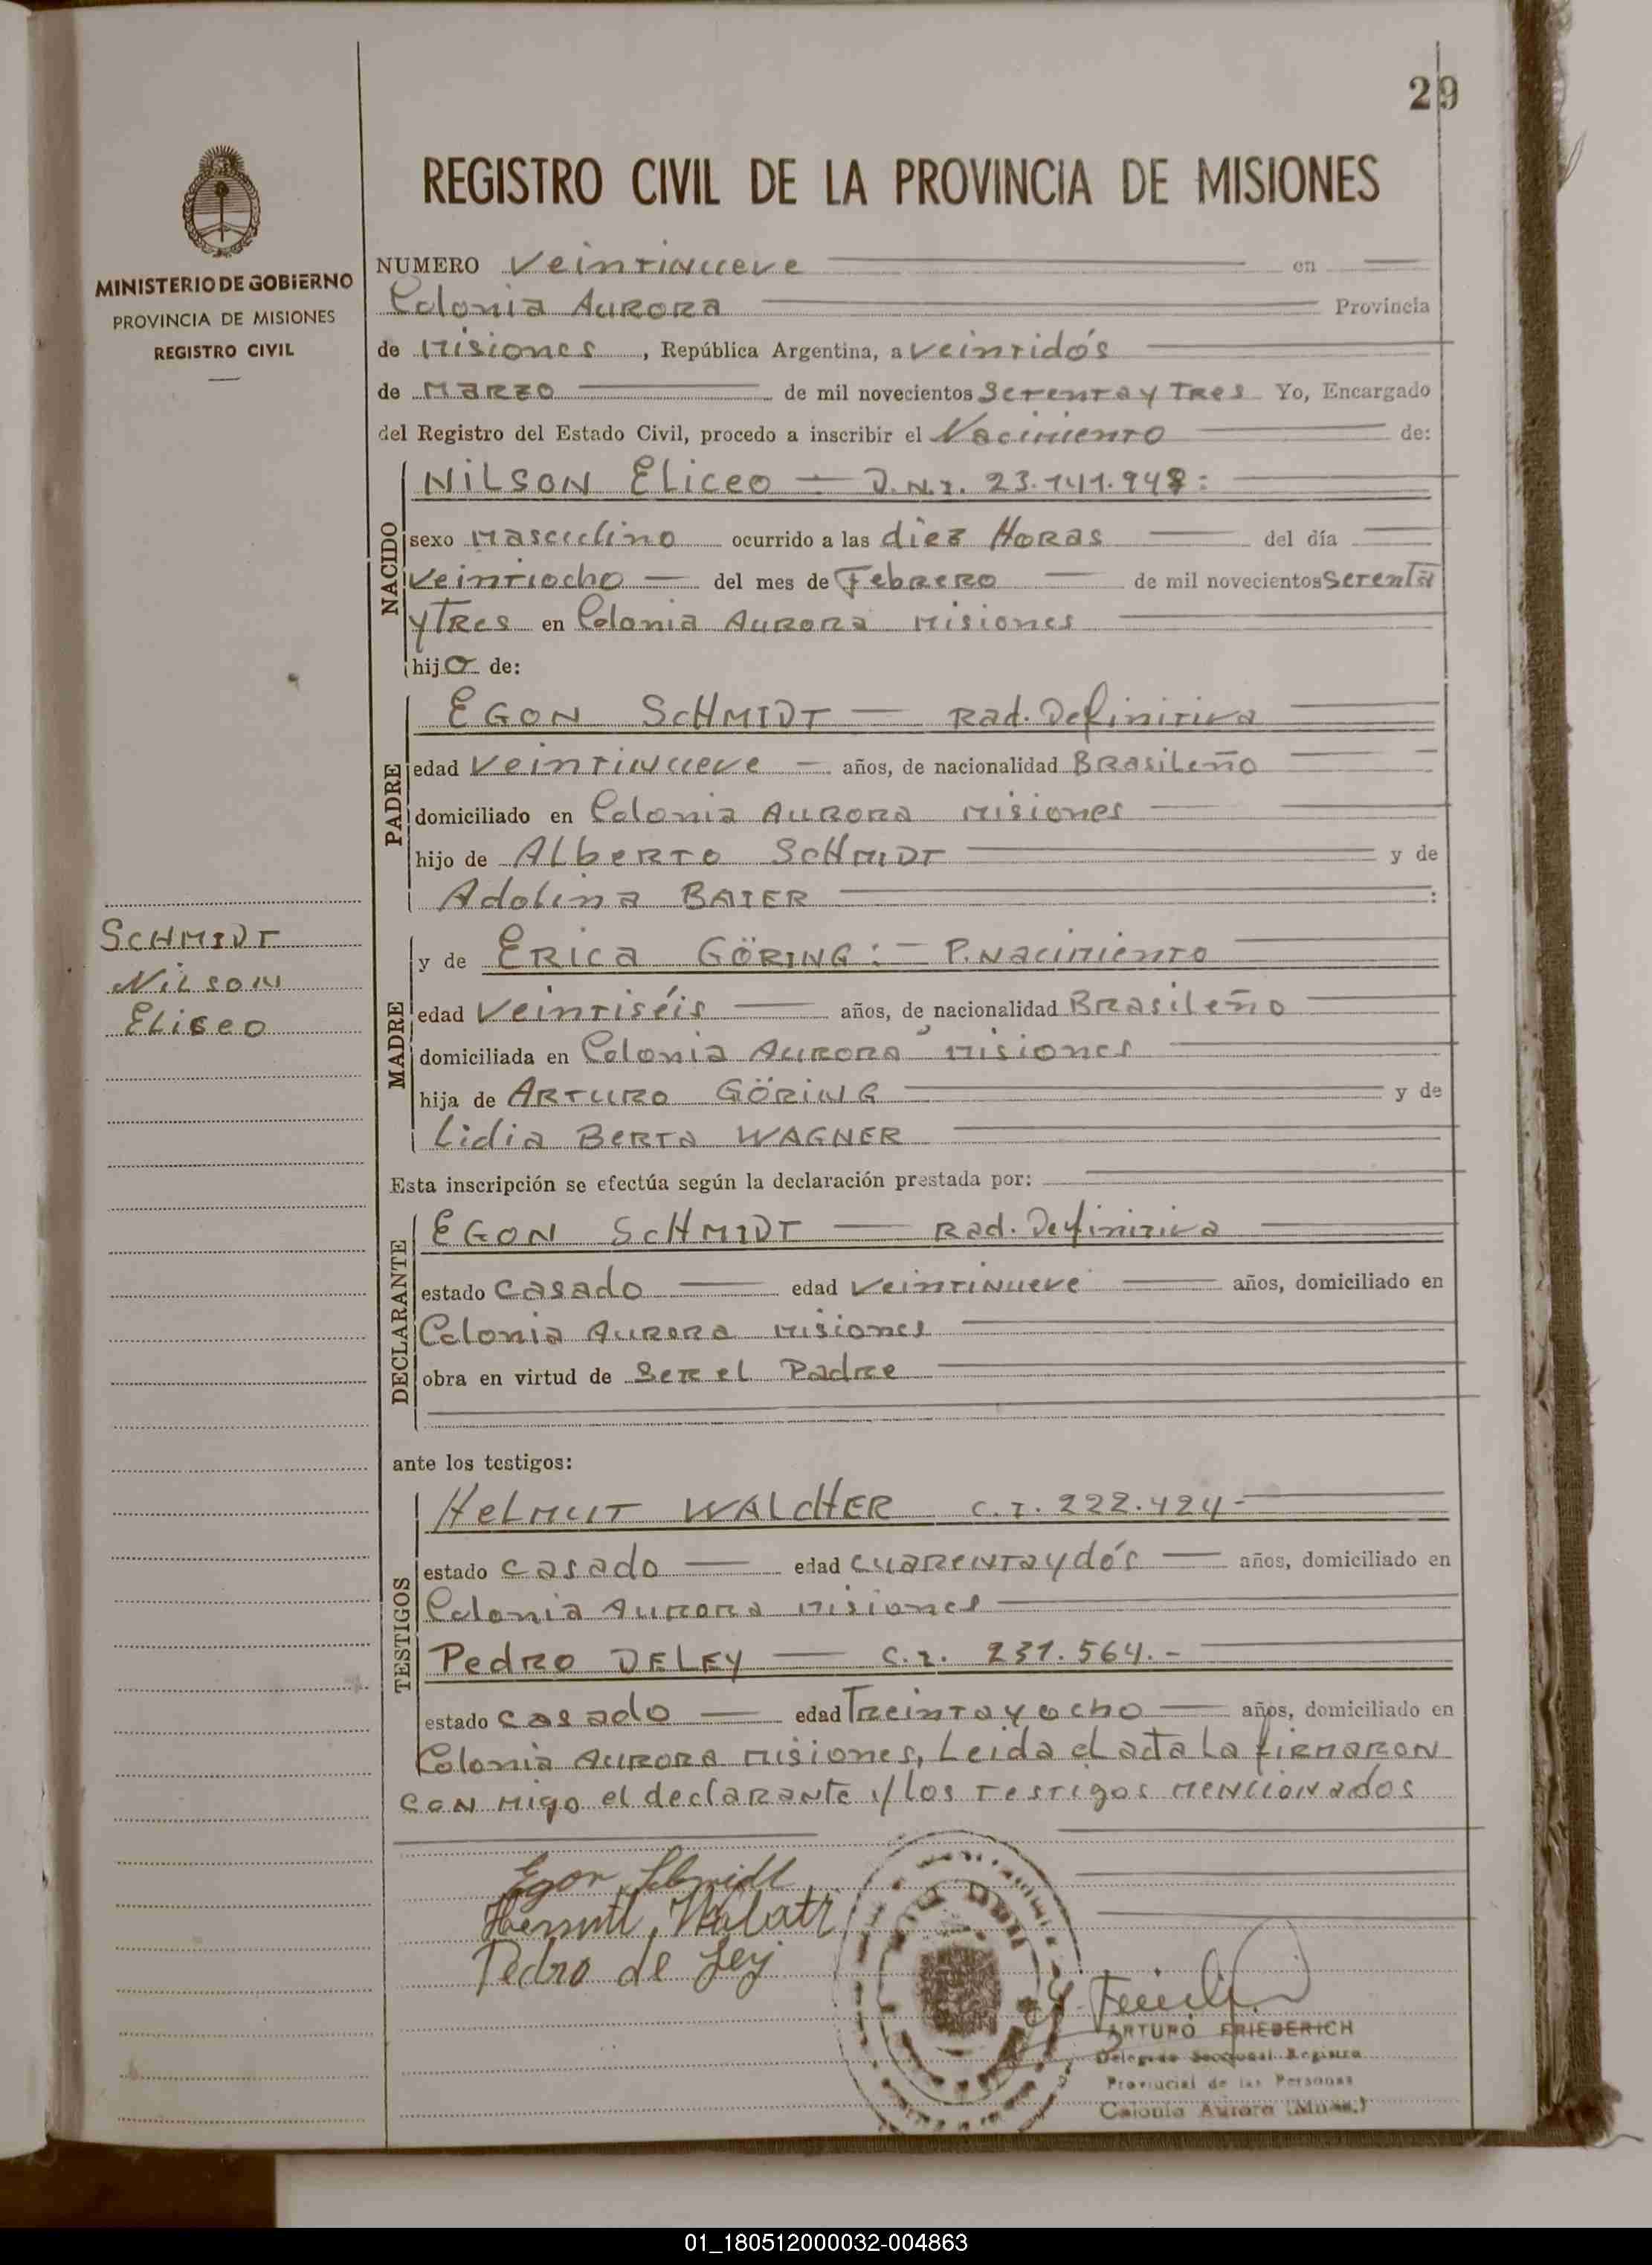 29
REGISTRO CIVIL DE LA PROVINCIA DE MISIONES
MINISTERIO DE GOBIERNO
PROVINCIA DE MISIONES
REGISTRO CIVIL
NUMERO Veintinueve en
Colonia Aurora Provincia
de Misiones, República Argentina, a veintidós
de Marzo de mil novecientos Setenta y Tres Yo, Encargado
del Registro del Estado Civil, procedo a inscribir el Nacimiento de:
NACIDO
NILSON Eliceo - D.N.I. 23.141.948:
sexo Masculino ocurrido a las diez Horas del día
Veintiocho del mes de Febrero de mil novecientos Setenta
y Tres en Colonia Aurora Misiones
hijo de:
PADRE
EGON SCHMIDT - Rad. Definitiva
edad Veintinueve años, de nacionalidad Brasileño
domiciliado en Colonia Aurora Misiones
hijo de Alberto SCHMIDT y de
Adolina BAIER :
MADRE
y de Erica GÖRING: - P. Nacimiento
edad Veintiséis años, de nacionalidad Brasileño
domiciliada en Colonia Aurora Misiones
hija de Arturo GÖRING y de
Lidia Berta WAGNER
SCHMIDT
Nilson
Eliseo
Esta inscripción se efectúa según la declaración prestada por:
DECLARANTE
EGON SCHMIDT - Rad. Definitiva
estado Casado edad Veintinueve años, domiciliado en
Colonia Aurora Misiones
obra en virtud de Ser el Padre
ante los testigos:
TESTIGOS
Helmut WALCHER C.I. 222.424-
estado Casado edad cuarenta y dós años, domiciliado en
Colonia Aurora Misiones
Pedro DELEY - C.I. 231.564.-
estado Casado edad Treinta y ocho años, domiciliado en
Colonia Aurora Misiones, Leida el acta La firmaron
con migo el declarante y los testigos mencionados
Egon Schmidt
Pedro de Ley
ARTURO FRIEDERICH
Delegado Seccional Registro
Provincial de las Personas
Colonia Aurora (Mnes.)
01_180512000032-004863